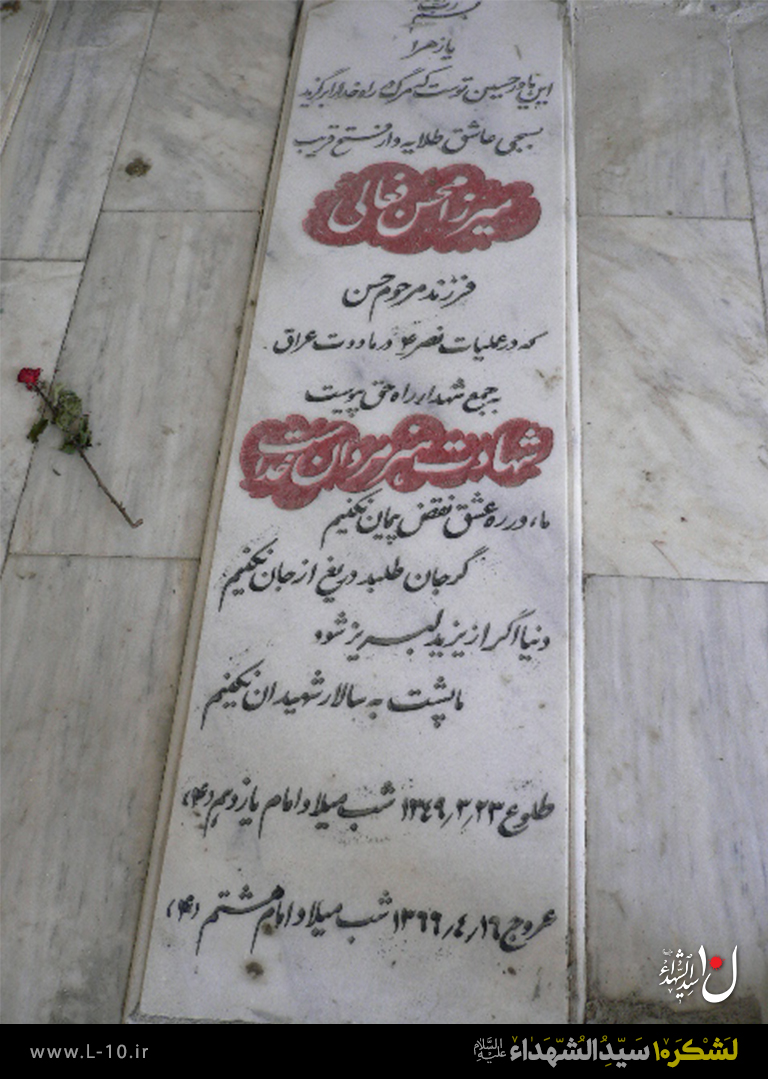 یا زهرا
این یاور حسین توست که مرگ در راه خدا را برگزید
بسیجی عاشق طلایه دار فتح قریب
میرزا محسن فعالی
فرزند مرحوم حسن
که در عملیات نصر ۴ در ماووت عراق
به جمع شهدا راه حق پیوست
شهادت هنر مردان خداست
ما، در ره عشق نقض پیمان نکنیم
گر جان طلبد دریغ از جان نکنیم
دنیا اگر از یزید لبریز شود
ما پشت به سالار شهیدان نکنیم
طلوع ۱۳۴۹٫۳٫۲۳ شب میلاد امام یازدهم (ع)
عروج ۱۳۶۶٫۴٫۱۹ شب میلاد امام هشتم (ع)
ل۱۰ سیدالشهداء
لشکر۱۰ سَیّدُالشُهَداء علیه السلام
www.L-10.ir